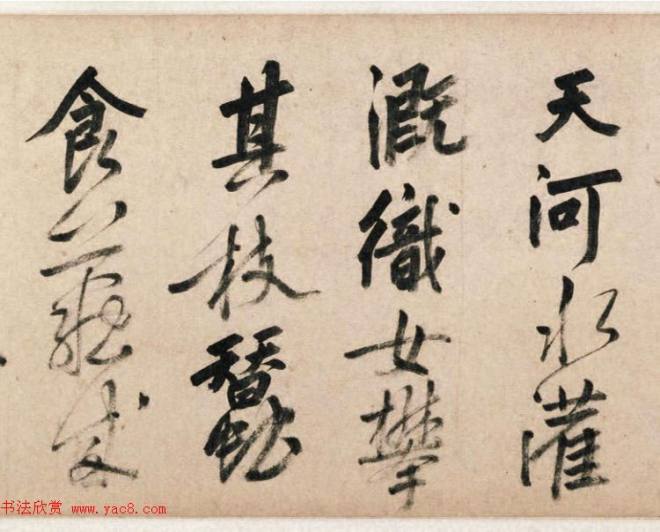 天河水灌
溉織女攀
其枝蠶
食
书法欣赏 www.yac8.com